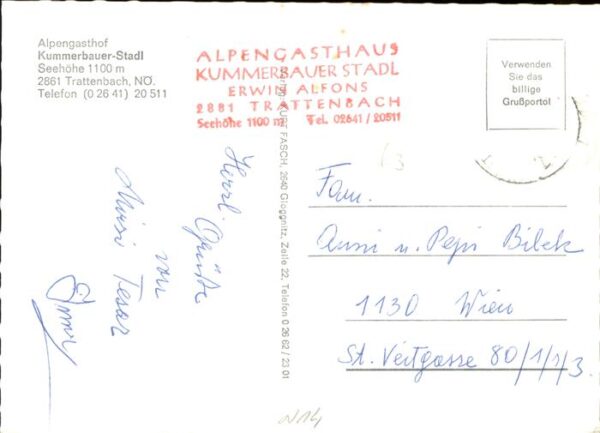 Alpengasthof
Kummerbauer-Stadl
Seehöhe 1100 m
2861 Trattenbach, NÖ.
Telefon (0 26 41) 20 511
ALPENGASTHAUS
KUMMERBAUER STADL
ERWIN ALFONS
2881 TRATTENBACH
Seehöhe 1100 m Tel. 02641 / 20511
Verwenden
Sie das
billige
Grußporto!
KURT FASCH, 2640 Gloggnitz, Zeile 22, Telefon 0 26 62 / 23 01
Herzl. Grüße
von
Missi Tesar
Fam.
Anni u. Pepi Bilek
1130 Wien
St. Veitgasse 80/1/1/3.
N14